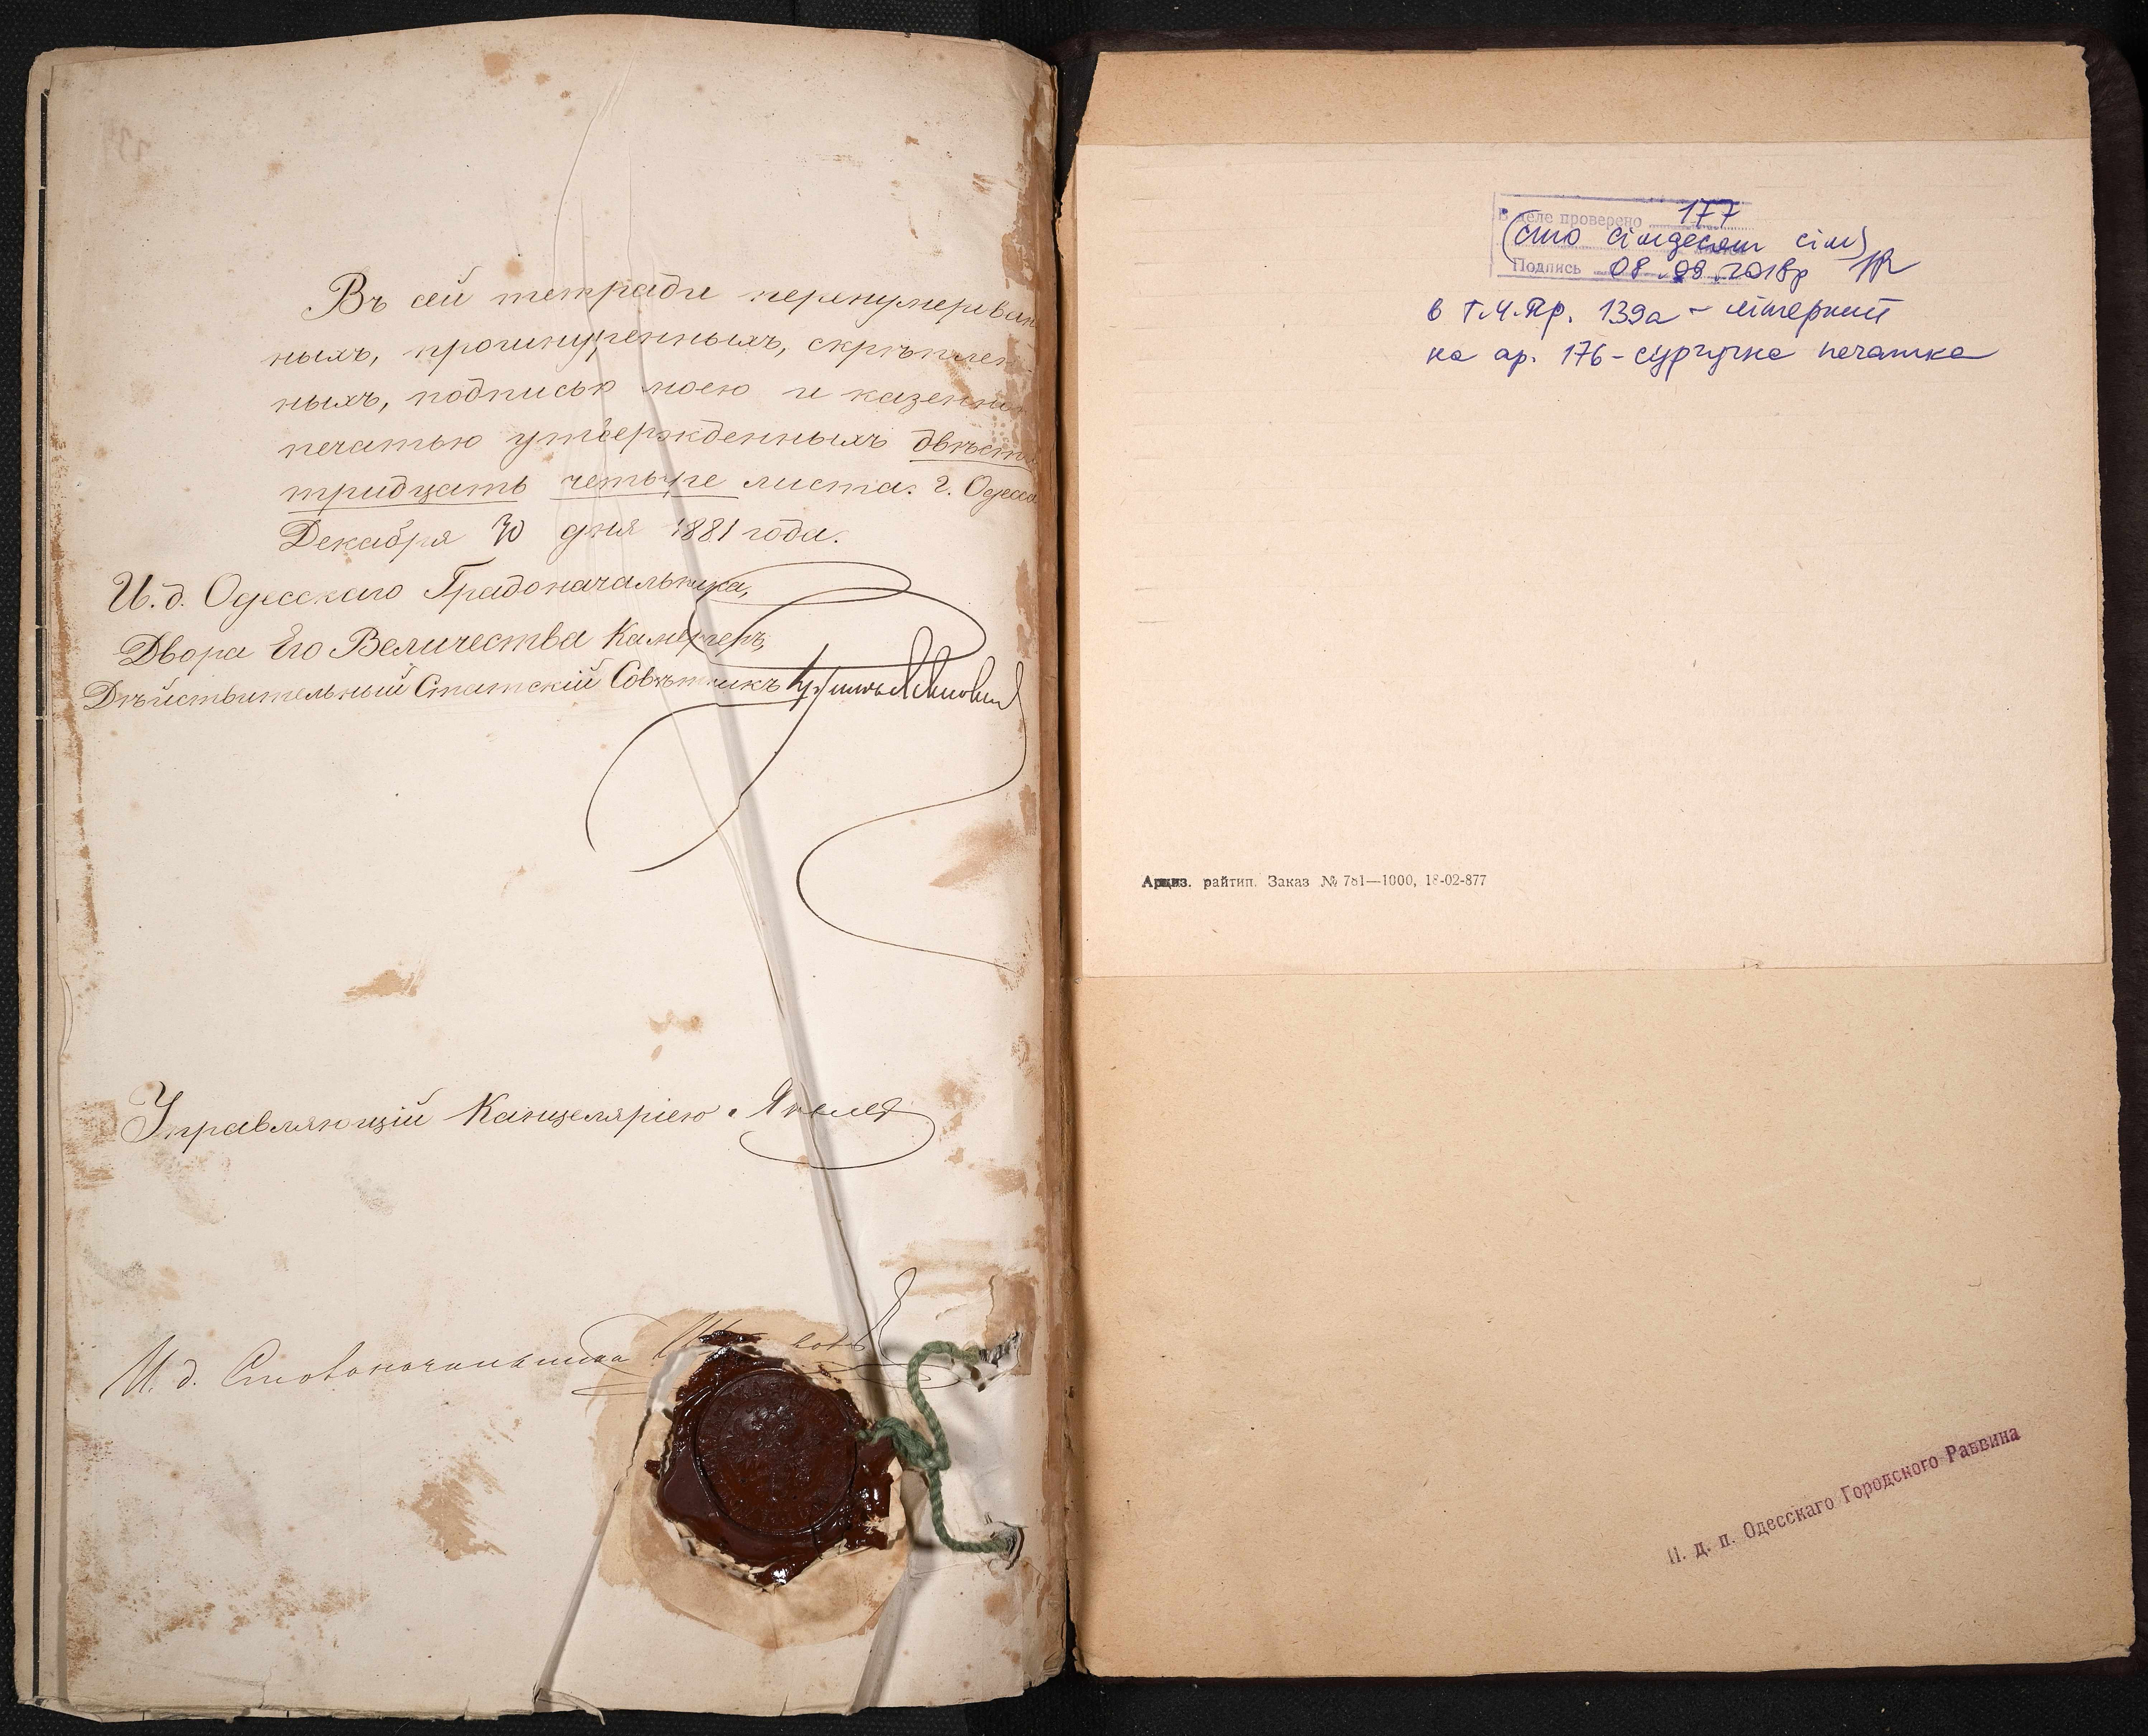 Въ сей тетради перенумерован
ныхъ, прошнуренныхъ, скрѣплен
ныхъ, подписью моею и казенной
печатью утвержденныхъ двѣсти
тридцать четыре листа. г. Одесса
Декабря 30 дня 1881 года.
И. д. Одесскаго Градоначальника,
Двора Его Величества Камергеръ,
Дѣйствительный Статскій Совѣтникъ
Управляющій Канцеляріею
И. д. Столоначальника
В деле проверено 177
(сто сімдесят сім)
Подпись 08.08.2018р
в т.ч. пр. 139а - літерний
на ар. 176 - сургучна печатка
Арциз. райтип. Заказ № 781—1000, 18-02-877
И. д. п. Одесскаго Городского Раввина